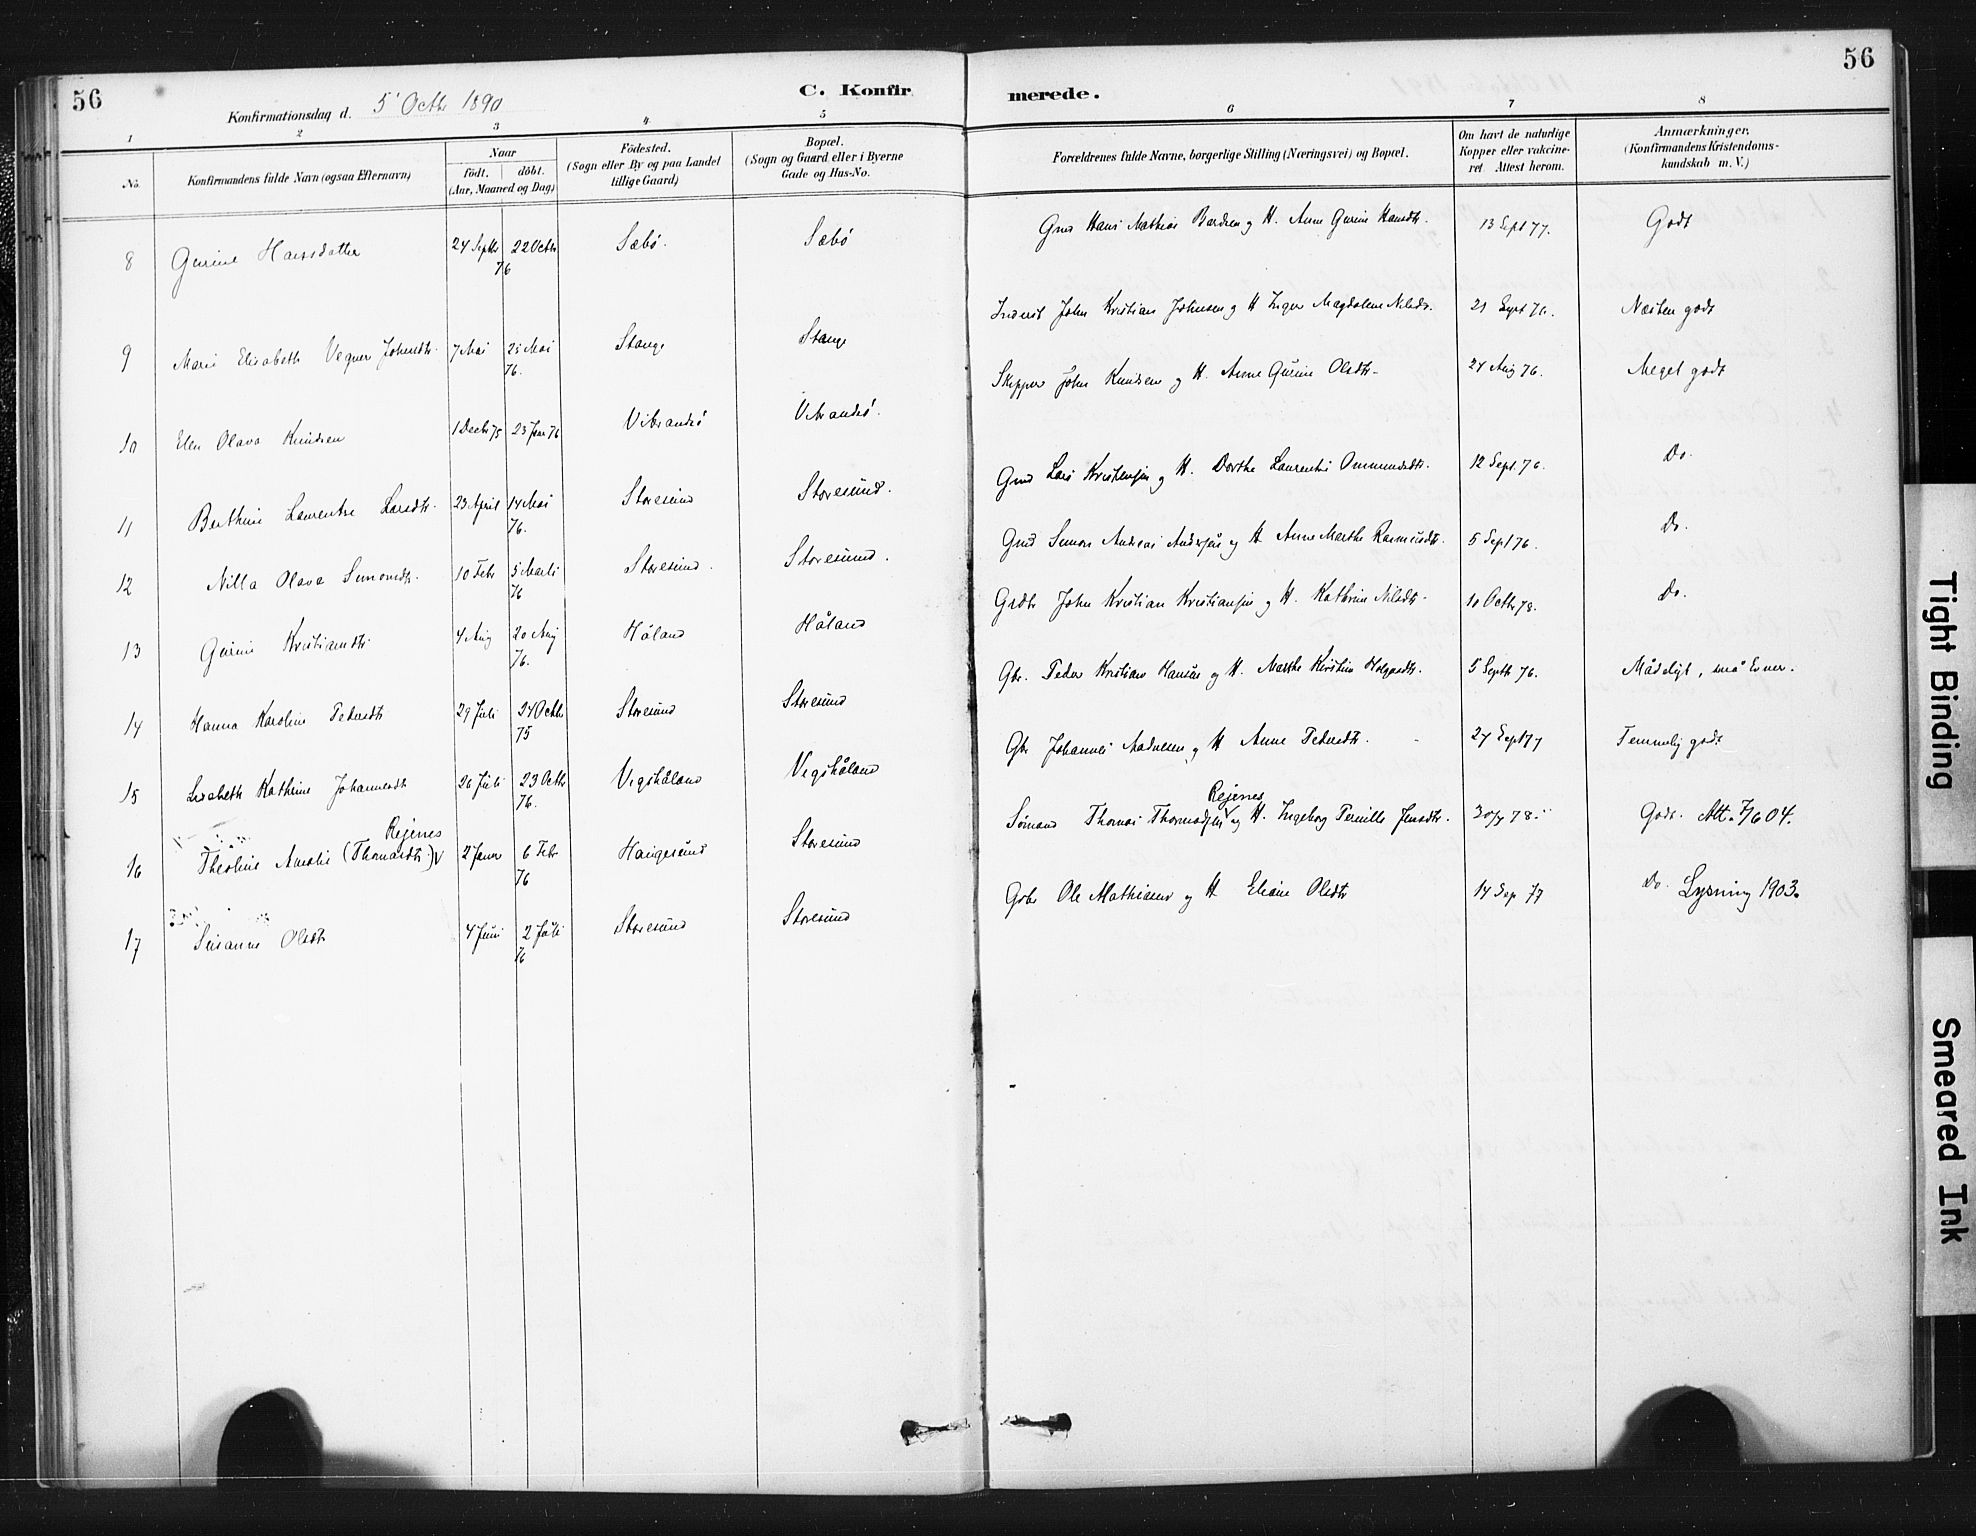 56
C. Konfirmerede.
56
Konfirmationsdag d. 5' Octbr 1890
1 2 3 4 5 6 7 8
No.
Konfirmandens fulde Navn (ogsaa Efternavn)
Naar
födt. döbt.
(Aar, Maaned og Dag)
Födested.
(Sogn eller By og paa Landet
tillige Gaard)
Bopæl.
(Sogn og Gaard eller i Byerne
Gade og Hus-No.
Forældrenes fulde Navne, borgerlige Stilling (Næringsvei) og Bopæl.
Om havt de naturlige
Kopper eller vakcine-
ret Attest herom.
Anmærkninger.
(Konfirmandens Kristendoms-
kundskab m. V.)
8 Gurine Hansdatter 24 Septbr 22 Octbr 76 Sæbö. Sæbö Gmd Hans Mathias Bardsen og H. Anne Gurine Hansdtr. 13 Sept 77. Godt
9 Marie Elisabeth Vegner Johnsdtr. 7 Mai 25 Mai 76. Stange Stange Inderst John Kristian Johnsen og H Inger Magdalene Nilsdr. 21 Sept 76. Næsten godt
10 Elen Olava Knudsen 1 Decbr 75 23 Janr 76 Vibrandsö Vibrandsö. Skipper John Knudsen og H. Anne Gurine Olsdtr. 24 Aug 76. Meget godt
11 Berthine Laurentse Larsdtr. 23 April 14 Mai 76. Storesund Storesund. Gmd Lars Kristensen og H. Dorthe Laurentse Ommundsdtr. 12 Sept. 76. Do.
12 Nilla Olava Simonsdtr. 10 Febr 5 Marts 76 Storesund. Storesund. Gmd Simon Andreas Andersen og H Anne Marthe Rasmusdtr. 5 Sept 76. Do.
13 Gurine Kristiansdtr. 4 Aug 20 Aug 76. Håland Håland Grdbr John Kristian Kristiansen og H. Kathrine Nilsdtr. 10 Octbr 78. Do.
14 Hanna Karoline Pedersdtr 29 Juli 24 Octbr 75 Storesund Storesund Gbr. Peder Kristian Hansen og H. Marthe Kirstine Holgersdtr. 5 Septb 76. Mådeligt, små Evner.
15 Lisabeth Kathrine Johannesdtr 26 Juli 23 Octbr 76. Vigshåland Vigshåland Gbr Johannes Andersen og H Anne Pedersdtr. 27 Sept 77 Temmelig godt
Rejenes
16 Theoline Amalie (Thomasdtr.) V 2 Janr 6 Febr 76 Haugesund Storesund Sømand Thomas Thomassen V og H. Ingeborg Pernille Jensdtr. 30/7 78. Godt. Att. 7/6 04.
Rejenes
17 Susanne Olsdtr 4 Juni 2 Juli 76 Storesund Storesund Gbr Ole Mathiasen og H Eliane Olsdtr 14 Sep 77 Do. Lysning 1903.
Tight Binding
Smeared Ink